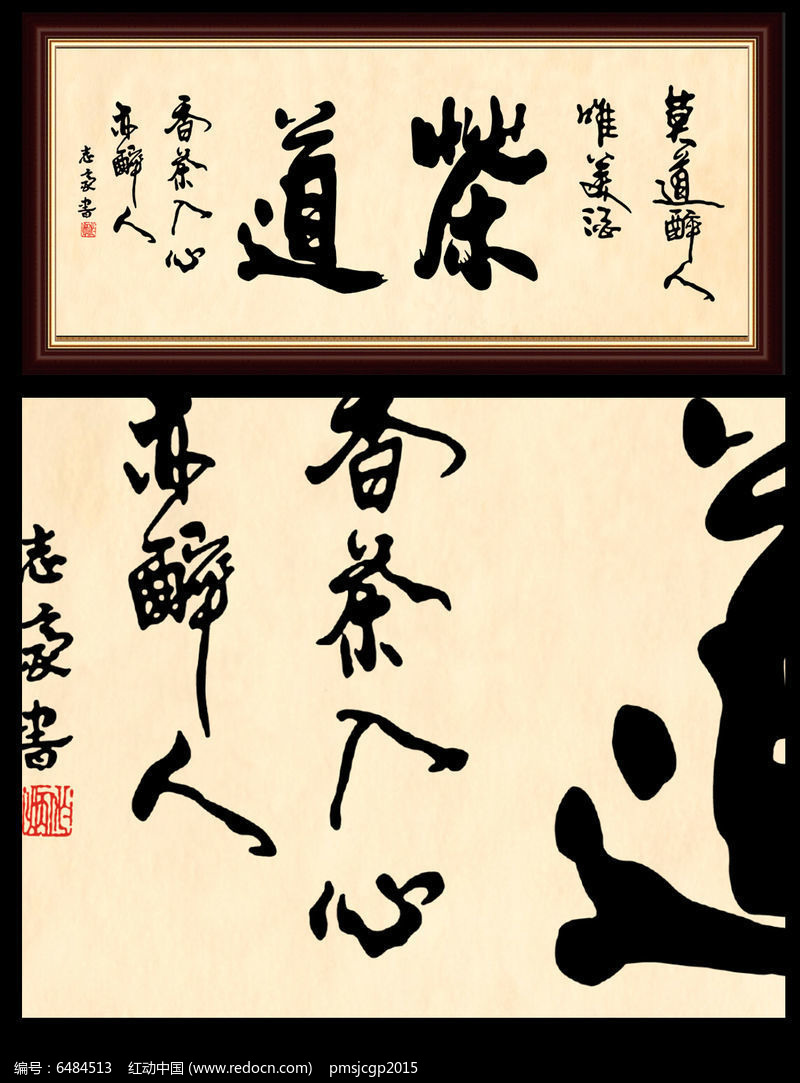 莫道醉人
唯美酒
茶道
香茶入心
亦醉人
志豪書
香茶入心
亦醉人
志豪書
编号：6484513 红动中国 (www.redocn.com) pmsjcgp2015